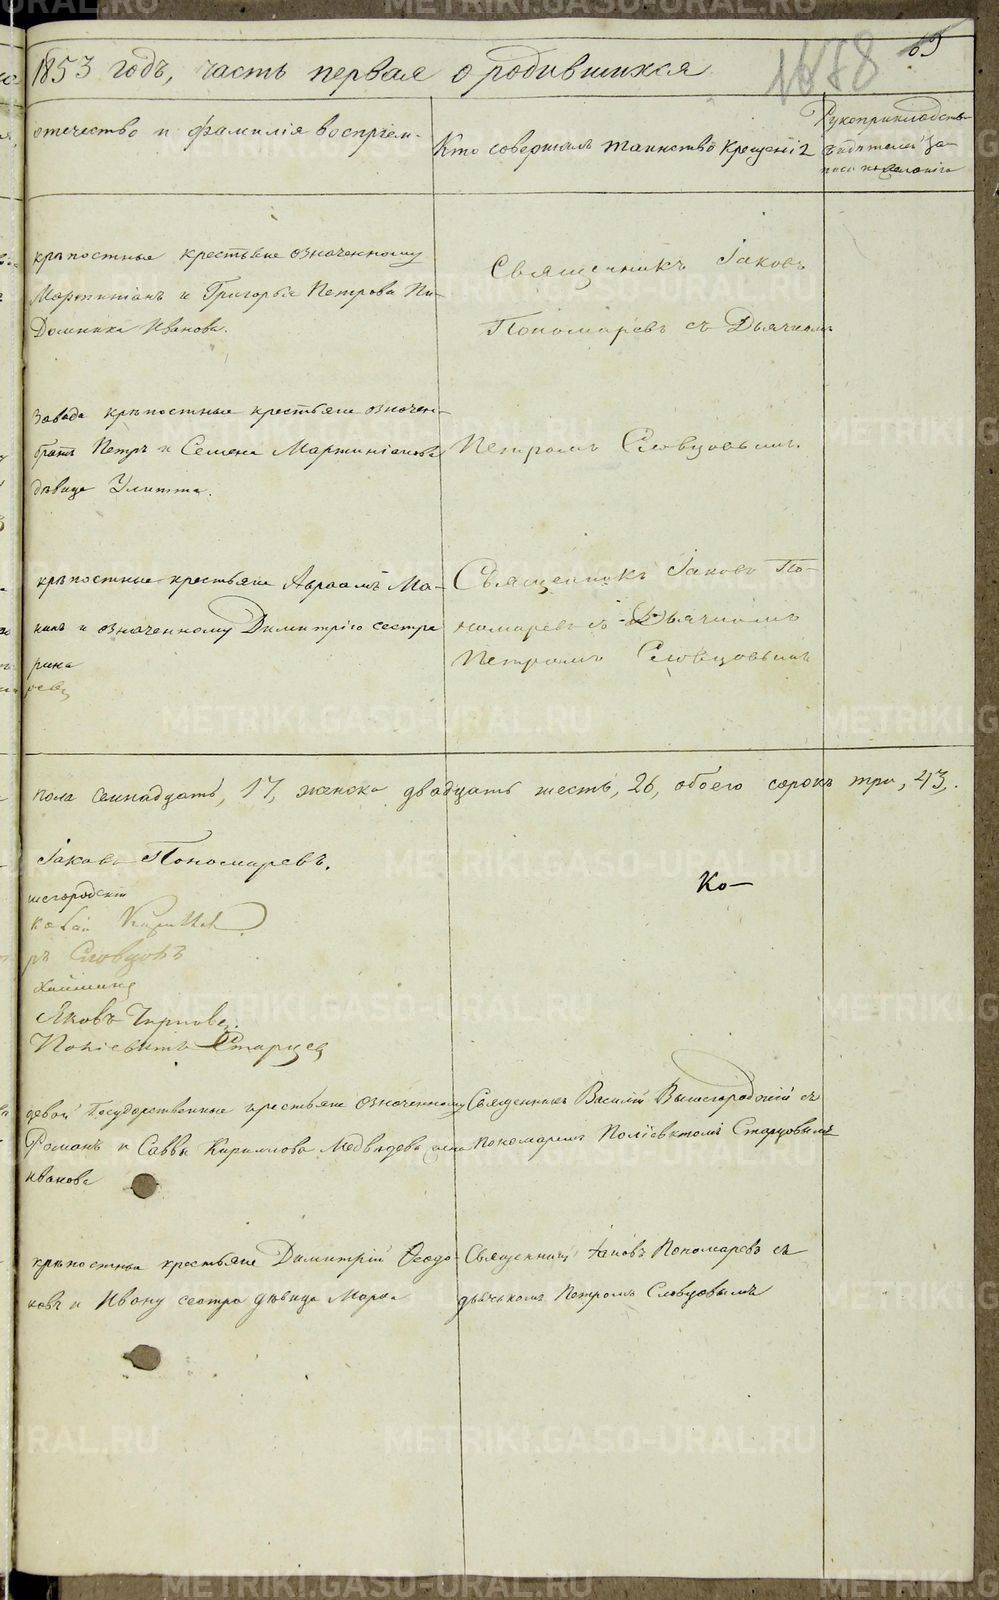 65
1878
1853 годъ, часть первая о родившихся
отечество и фамилія воспріем-
Кто совершалъ таинство крещенія
Рукоприкладство
свидѣтелей за-
писи по желанію
крѣпостные крестьяне означенному
Мартиніанъ и Григорья Петрова
Домника Иванова.
Священникъ Іаковъ
Пономаревъ съ Дьячкомъ
завода крѣпостные крестьяне означен-
братъ Петръ и Семена Мартиніанова
дѣвица Улитта.
Петромъ Словцовымъ.
крѣпостные крестьяне Авраамъ Ма-
и означенному Димитрію сестра
рина
Священникъ Іаковъ По-
номаревъ съ Дьячкомъ
Петромъ Словцовымъ
пола семнадцать, 17, женска двадцать шесть, 26, обоего сорокъ три, 43,.
Іаковъ Пономаревъ.
шегородскій
ръ Словцовъ
Ко-
Яковъ
Старцев
девой Государственные крестьяне означенному
Романъ и Саввы Кириллова Медвѣдева
Иванова
Священникъ Василій Вышегородскій съ
пономаремъ Поліевктомъ Старцовымъ
крѣпостные крестьяне Димитрій Ѳеодо-
ровъ и Ивану сестра дѣвица Марѳа
Священникъ Іаковъ Пономаревъ съ
дьячькомъ Петромъ Словцовымъ
METRIKI.GASO-URAL.RU